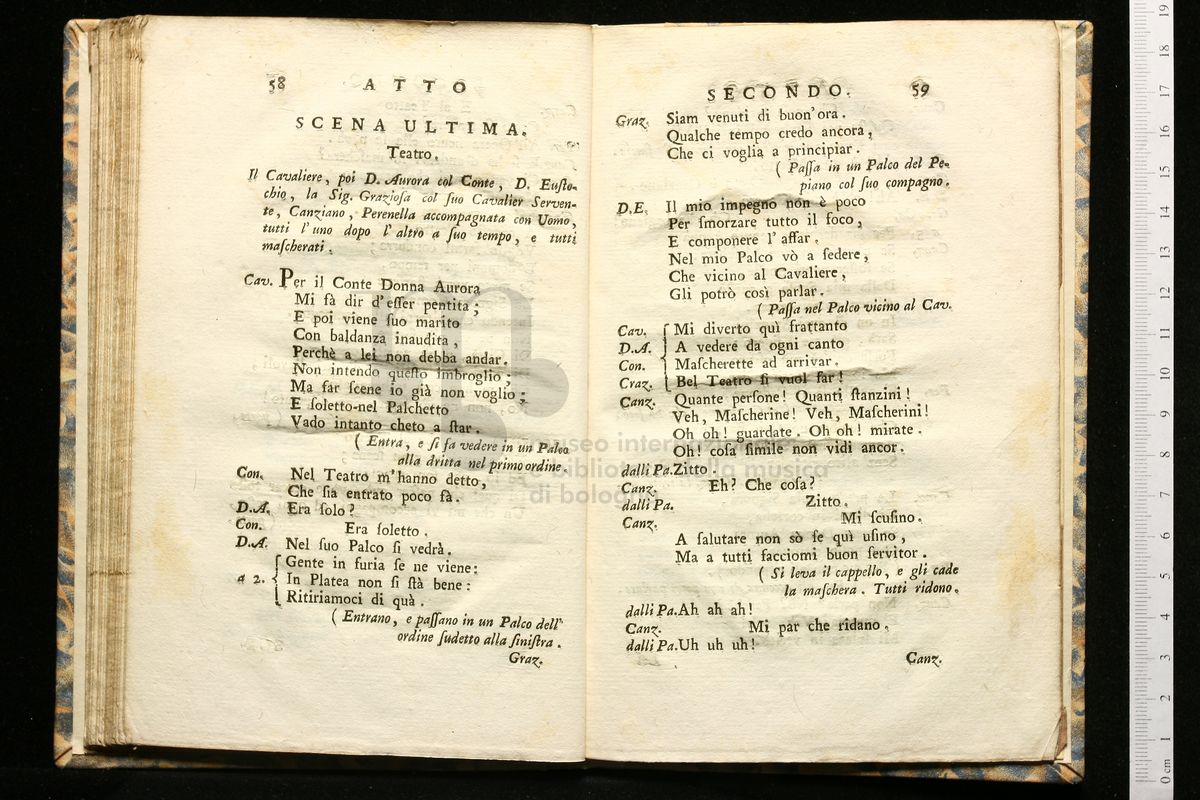 58 ATTO
SCENA ULTIMA.
Teatro.
Il Cavaliere, poi D. Aurora col Conte, D. Euſto-
chio, la Sig. Grazioſa col ſuo Cavalier Serven-
te, Canziano, Perenella accompagnata con Uomo,
tutti l'uno dopo l'altro a ſuo tempo, e tutti
maſcherati.
Cav. Per il Conte Donna Aurora
Mi fà dir d'eſſer pentita;
E poi viene ſuo marito
Con baldanza inaudita,
Perchè a lei non debba andar.
Non intendo queſto imbroglio;
Ma far ſcene io già non voglio;
E ſoletto-nel Palchetto
Vado intanto cheto a ſtar.
( Entra, e ſi fa vedere in un Palco
alla dritta nel primo ordine.
Con. Nel Teatro m'hanno detto,
Che ſia entrato poco fà.
D.A. Era ſolo?
Con. Era ſoletto.
D.A. Nel ſuo Palco ſi vedrà.
Gente in furia ſe ne viene:
a 2. { In Platea non ſi ſtà bene:
Ritiriamoci di quà.
( Entrano, e paſſano in un Palco dell'
ordine ſudetto alla ſiniſtra.
Graz.
SECONDO. 59
Graz. Siam venuti di buon'ora.
Qualche tempo credo ancora,
Che ci voglia a principiar.
( Paſſa in un Palco del Pe-
piano col ſuo compagno.
D.E. Il mio impegno non è poco
Per ſmorzare tutto il foco,
E componere l'affar.
Nel mio Palco vò a ſedere,
Che vicino al Cavaliere,
Gli potrò così parlar.
( Paſſa nel Palco vicino al Cav.
Cav. Mi diverto quì frattanto
D.A. A vedere da ogni canto
Con. Maſcherette ad arrivar.
Craz. Bel Teatro ſi vuol far!
Canz. Quante perſone! Quanti ſtanzini!
Veh, Maſcherine! Veh, Maſcherini!
Oh oh! guardate. Oh oh! mirate.
Oh! coſa ſimile non vidi ancor.
dalli Pa. Zitto.
Canz. Eh? Che coſa?
dalli Pa. Zitto.
Canz. Mi ſcuſino.
A ſalutare non sò ſe quì uſino,
Ma a tutti facciomi buon ſervitor.
( Si leva il cappello, e gli cade
la maſchera. Tutti ridono.
dalli Pa. Ah ah ah!
Canz. Mi par che ridano.
dalli Pa. Uh uh uh!
Canz.
museo internazionale
e biblioteca della musica
di bologna
0 cm 1 2 3 4 5 6 7 8 9 10 11 12 13 14 15 16 17 18 19